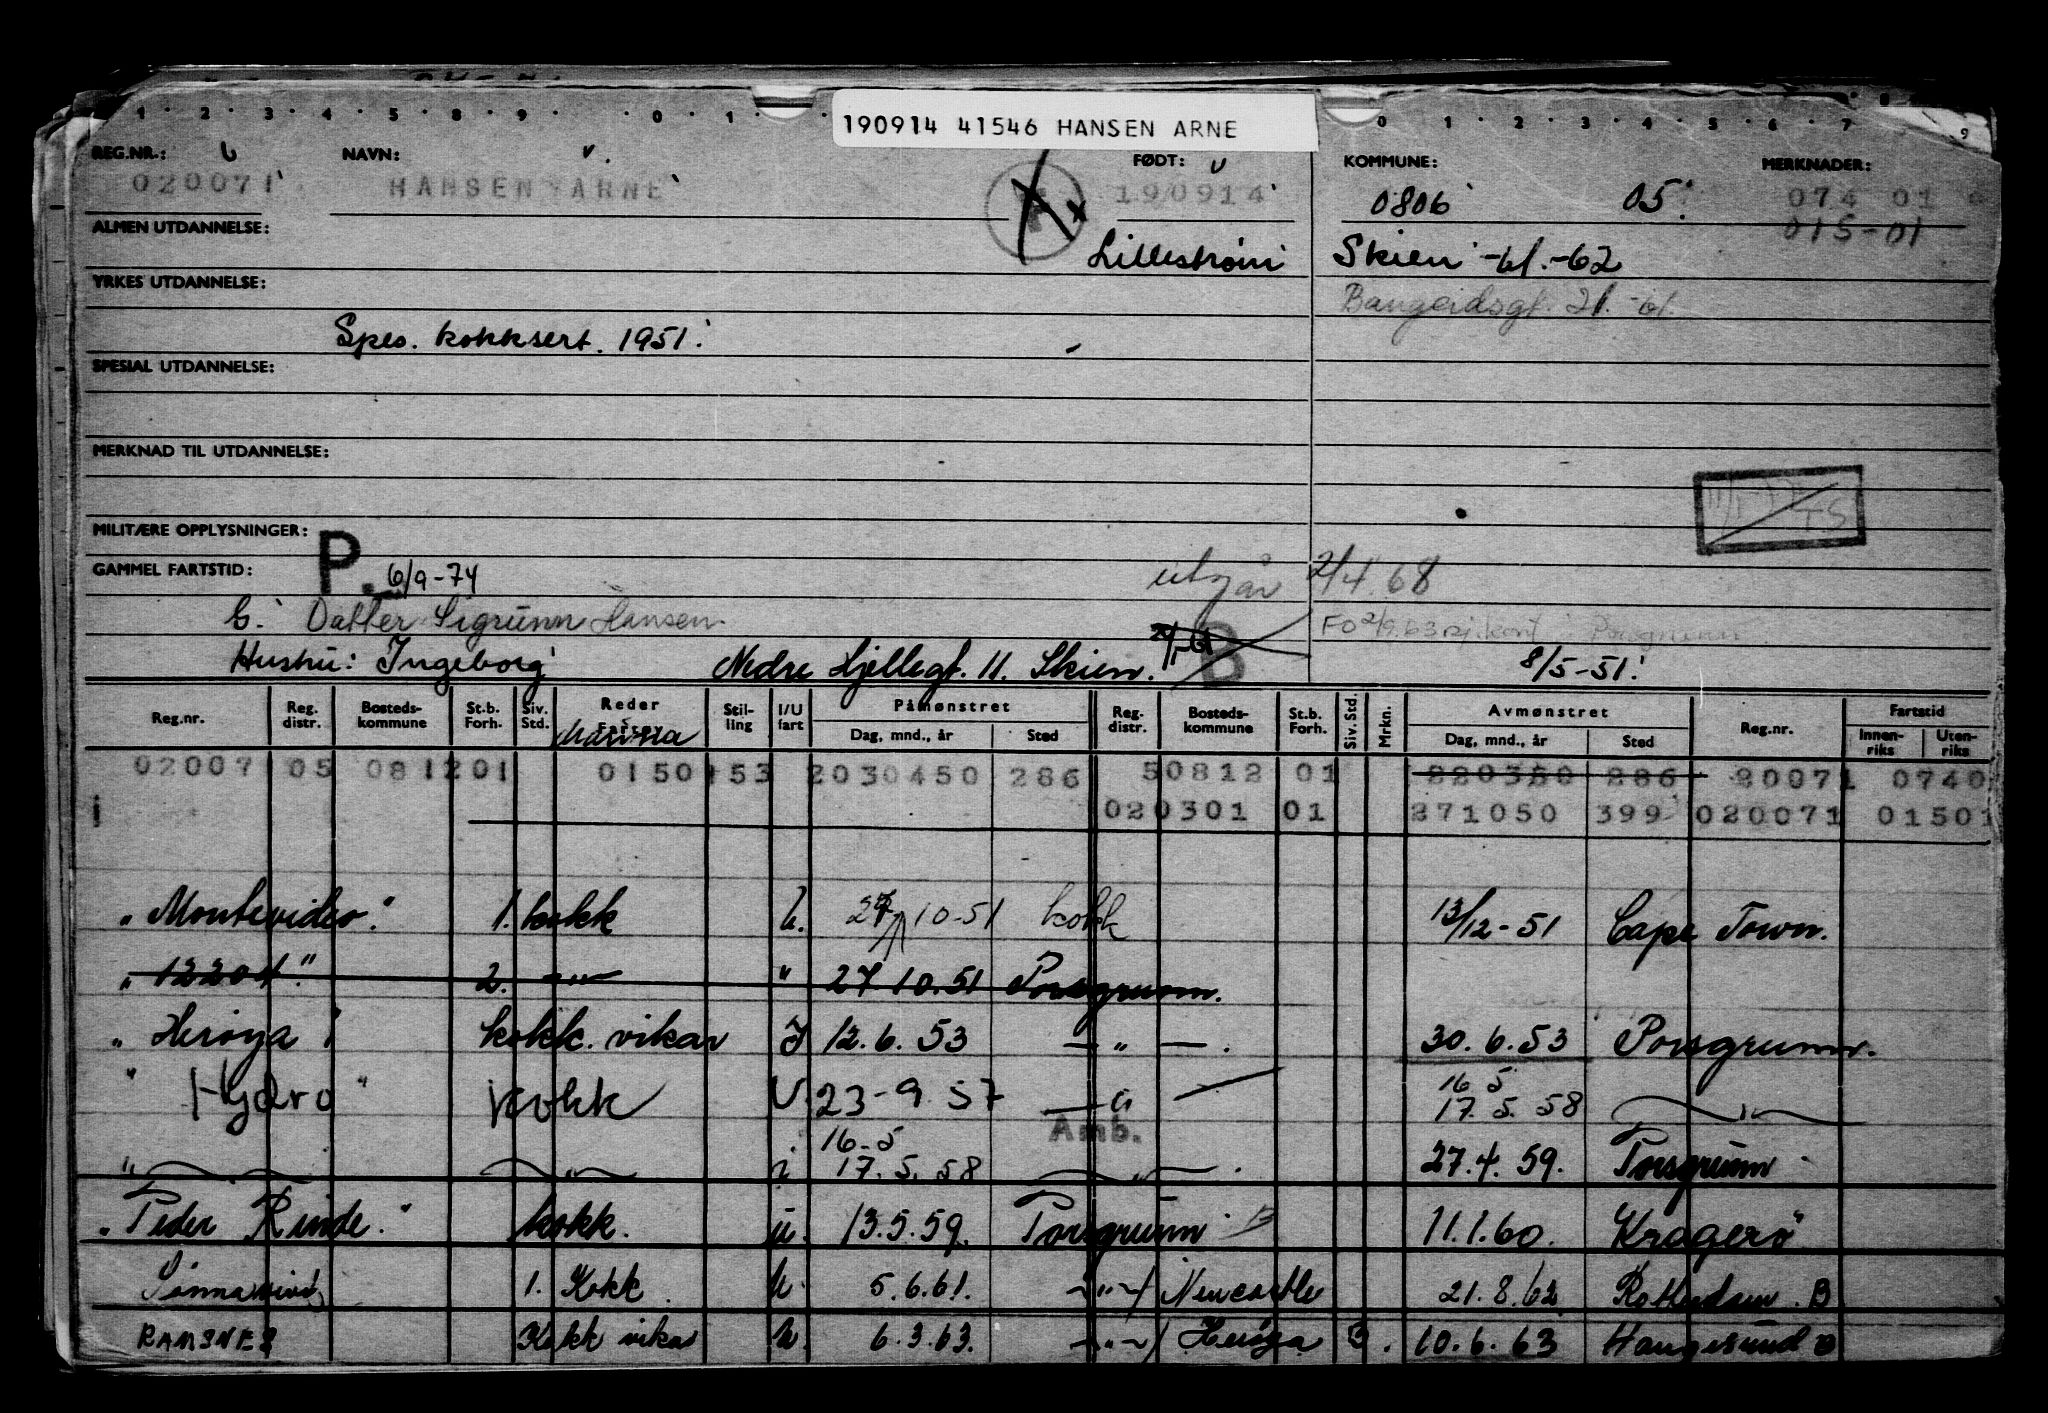 190914 41546 HANSEN ARNE
REG.NR.: NAVN: FØDT: KOMMUNE: MERKNADER:
020071 HANSEN ARNE 190914 0806 05. 074 01
015-01
ALMEN UTDANNELSE: Lillestrøm Skien -61.-62
YRKES UTDANNELSE: 21. -61.
Spes. kokksert. 1951.
SPESIAL UTDANNELSE:
MERKNAD TIL UTDANNELSE:
T.S
MILITÆRE OPPLYSNINGER:
GAMMEL FARTSTID: P. 6/9-74 utgår 2/4.68
G. Datter Sigrunn Hansen. FO 2/9.63 sj.kont. Porsgrunn
Hustru: Ingeborg Nedre Hjellegt. 11. Skien. B 8/5-51.
Reg.nr. Reg. distr. Bosteds- kommune St.b. Forh. Siv. Std. Reder Stil- ling I/U fart Påmønstret Dag, mnd., år Sted Reg. distr. Bosteds- kommune St.b. Forh. Siv. Std. Mrkn. Avmønstret Dag, mnd., år Sted Reg.nr. Fartstid Innen- riks Uten- riks
02007 05 081201 0150 153 2030450 286 50812 01 220350 286 20071 0740
020301 01 271050 399 020071 01501
"Montevideo." 1. kokk u. 27/10-51 kokk 13/12-51 Cape Town.
"12204." 2. -"- " 27 10.51 Porsgrunn.
"Herøya I kokk. vikar I 12.6.53 -"- . 30.6.53 Porsgrunn.
"Hydro" kokk U. 23-9.57 -"- 16 5 17.5.58 -"-
Amb.
" -"- i 16-5 17.5.58 -"- . 27.4.59. Porsgrunn
"Peder Rinde." kokk. u. 13.5.59. Porsgrunn B 11.1.60. Kragerø
1. Kokk. u. 5.6.61. -"-/ Newcastle 21.8.62 Rotterdam. B
RAMSNES Kokk vikar u. 6.3.63. -"-/ Herøya B. 10.6.63 Haugesund B